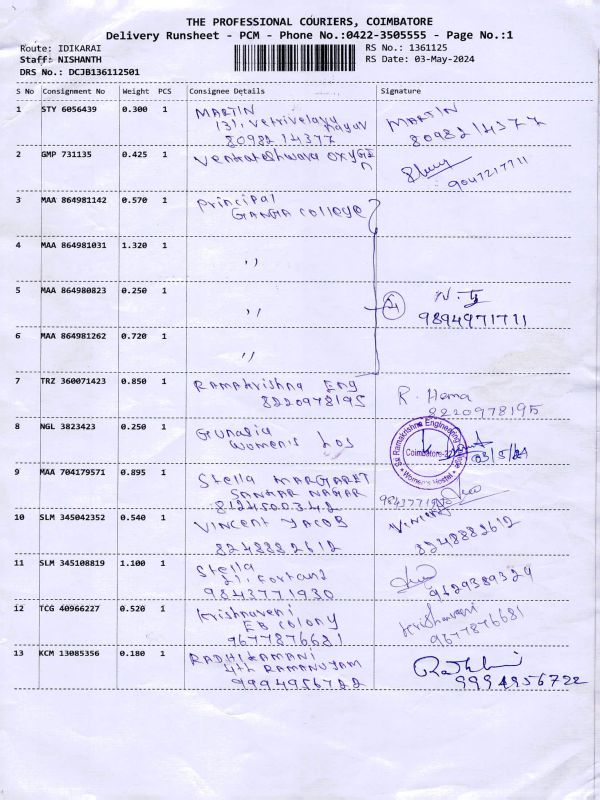 THE PROFESSIONAL COURIERS, COIMBATORE
Delivery Runsheet - PCM - Phone No.:0422-3505555 - Page No.:1
Route: IDIKARAI RS No.: 1361125
Staff: NISHANTH RS Date: 03-May-2024
DRS No.: DCJB136112501
S No Consignment No Weight PCS Consignee Details Signature
1 STY 6056439 0.300 1 MARTIN MARTIN
131, vetrivelava nagar
8098214377 8098214377
2 GMP 731135 0.425 1 Venkateshwara oxygen
9047217711
3 MAA 864981142 0.570 1 Principal
GANGA College
4 MAA 864981031 1.320 1 ,,
5 MAA 864980823 0.250 1 ,, 4
9894971711
6 MAA 864981262 0.720 1 ,,
7 TRZ 360071423 0.850 1 Ramakrishna Eng R. Hema
8220978195 8220978195
8 NGL 3823423 0.250 1
women's hos
Sri Ramakrishna Engineering College
Coimbatore-22
Women's Hostel
03/5/24
9 MAA 704179571 0.895 1 Stella MARGARET
SANKAR NAGAR
8124500342
10 SLM 345042352 0.540 1 VINCENT JACOB Vincent
8248882612 8248882612
11 SLM 345108819 1.100 1 Stella
21,
9843771930 9629389324
12 TCG 40966227 0.520 1 Krishnaveni
EB colony
9677876681 9677876681
13 KCM 13085356 0.180 1 RADHIKAMANI
4th RAMANUJAM
9994956722 9994956722